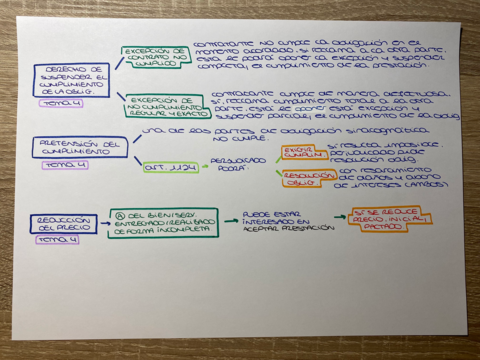 DERECHO DE
SUSPENDER EL
CUMPLIMIENTO
DE LA OBLIG.
TEMA 4
EXCEPCIÓN DE
CONTRATO NO
CUMPLIDO
CONTRATANTE NO CUMPLE LA OBLIGACIÓN EN EL
MOMENTO ACORDADO. SI RECLAMA A LA OTRA PARTE.
ESTA SE PODRÁ OPONER LA EXCEPCIÓN Y SUSPENDER
COMPLETA, EL CUMPLIMIENTO DE LA PRESTACIÓN
EXCEPCIÓN DE
NO CUMPLIMIENTO
REGULAR Y EXACTO
CONTRATANTE CUMPLE DE MANERA DEFECTUOSA.
SI, RECLAMA CUMPLIMIENTO TOTAL A LA OTRA
PARTE. ESTA SE OPONE ESTA EXCEPCIÓN Y
SUSPENDER PARCIAL, EL CUMPLIMIENTO DE LA OBLIG
PRETENSIÓN DEL
CUMPLIMIENTO
TEMA 4
UNA DE LAS PARTES DE OBLIGACIÓN SINALAGMÁTICA
NO CUMPLE.
ART. 1124
PERJUDICADO
PODRÁ:
EXIGIR
CUMPLIM.
SI RESULTA IMPOSIBLE.
PERJUDICADO PIDE
RESOLUCIÓN OBLIG.
RESOLUCIÓN
OBLIG.
CON RESARCIMIENTO
DE DAÑOS Y ABONO
DE INTERESES (AMBOS)
REDUCCIÓN
DEL PRECIO
TEMA 4
Ⓐ DEL BIEN/SERV.
ENTREGADO/REALIZADO
DE FORMA INCOMPLETA
PUEDE ESTAR
INTERESADO EN
ACEPTAR PRESTACIÓN
SI SE REDUCE
PRECIO INICIAL,
PACTADO